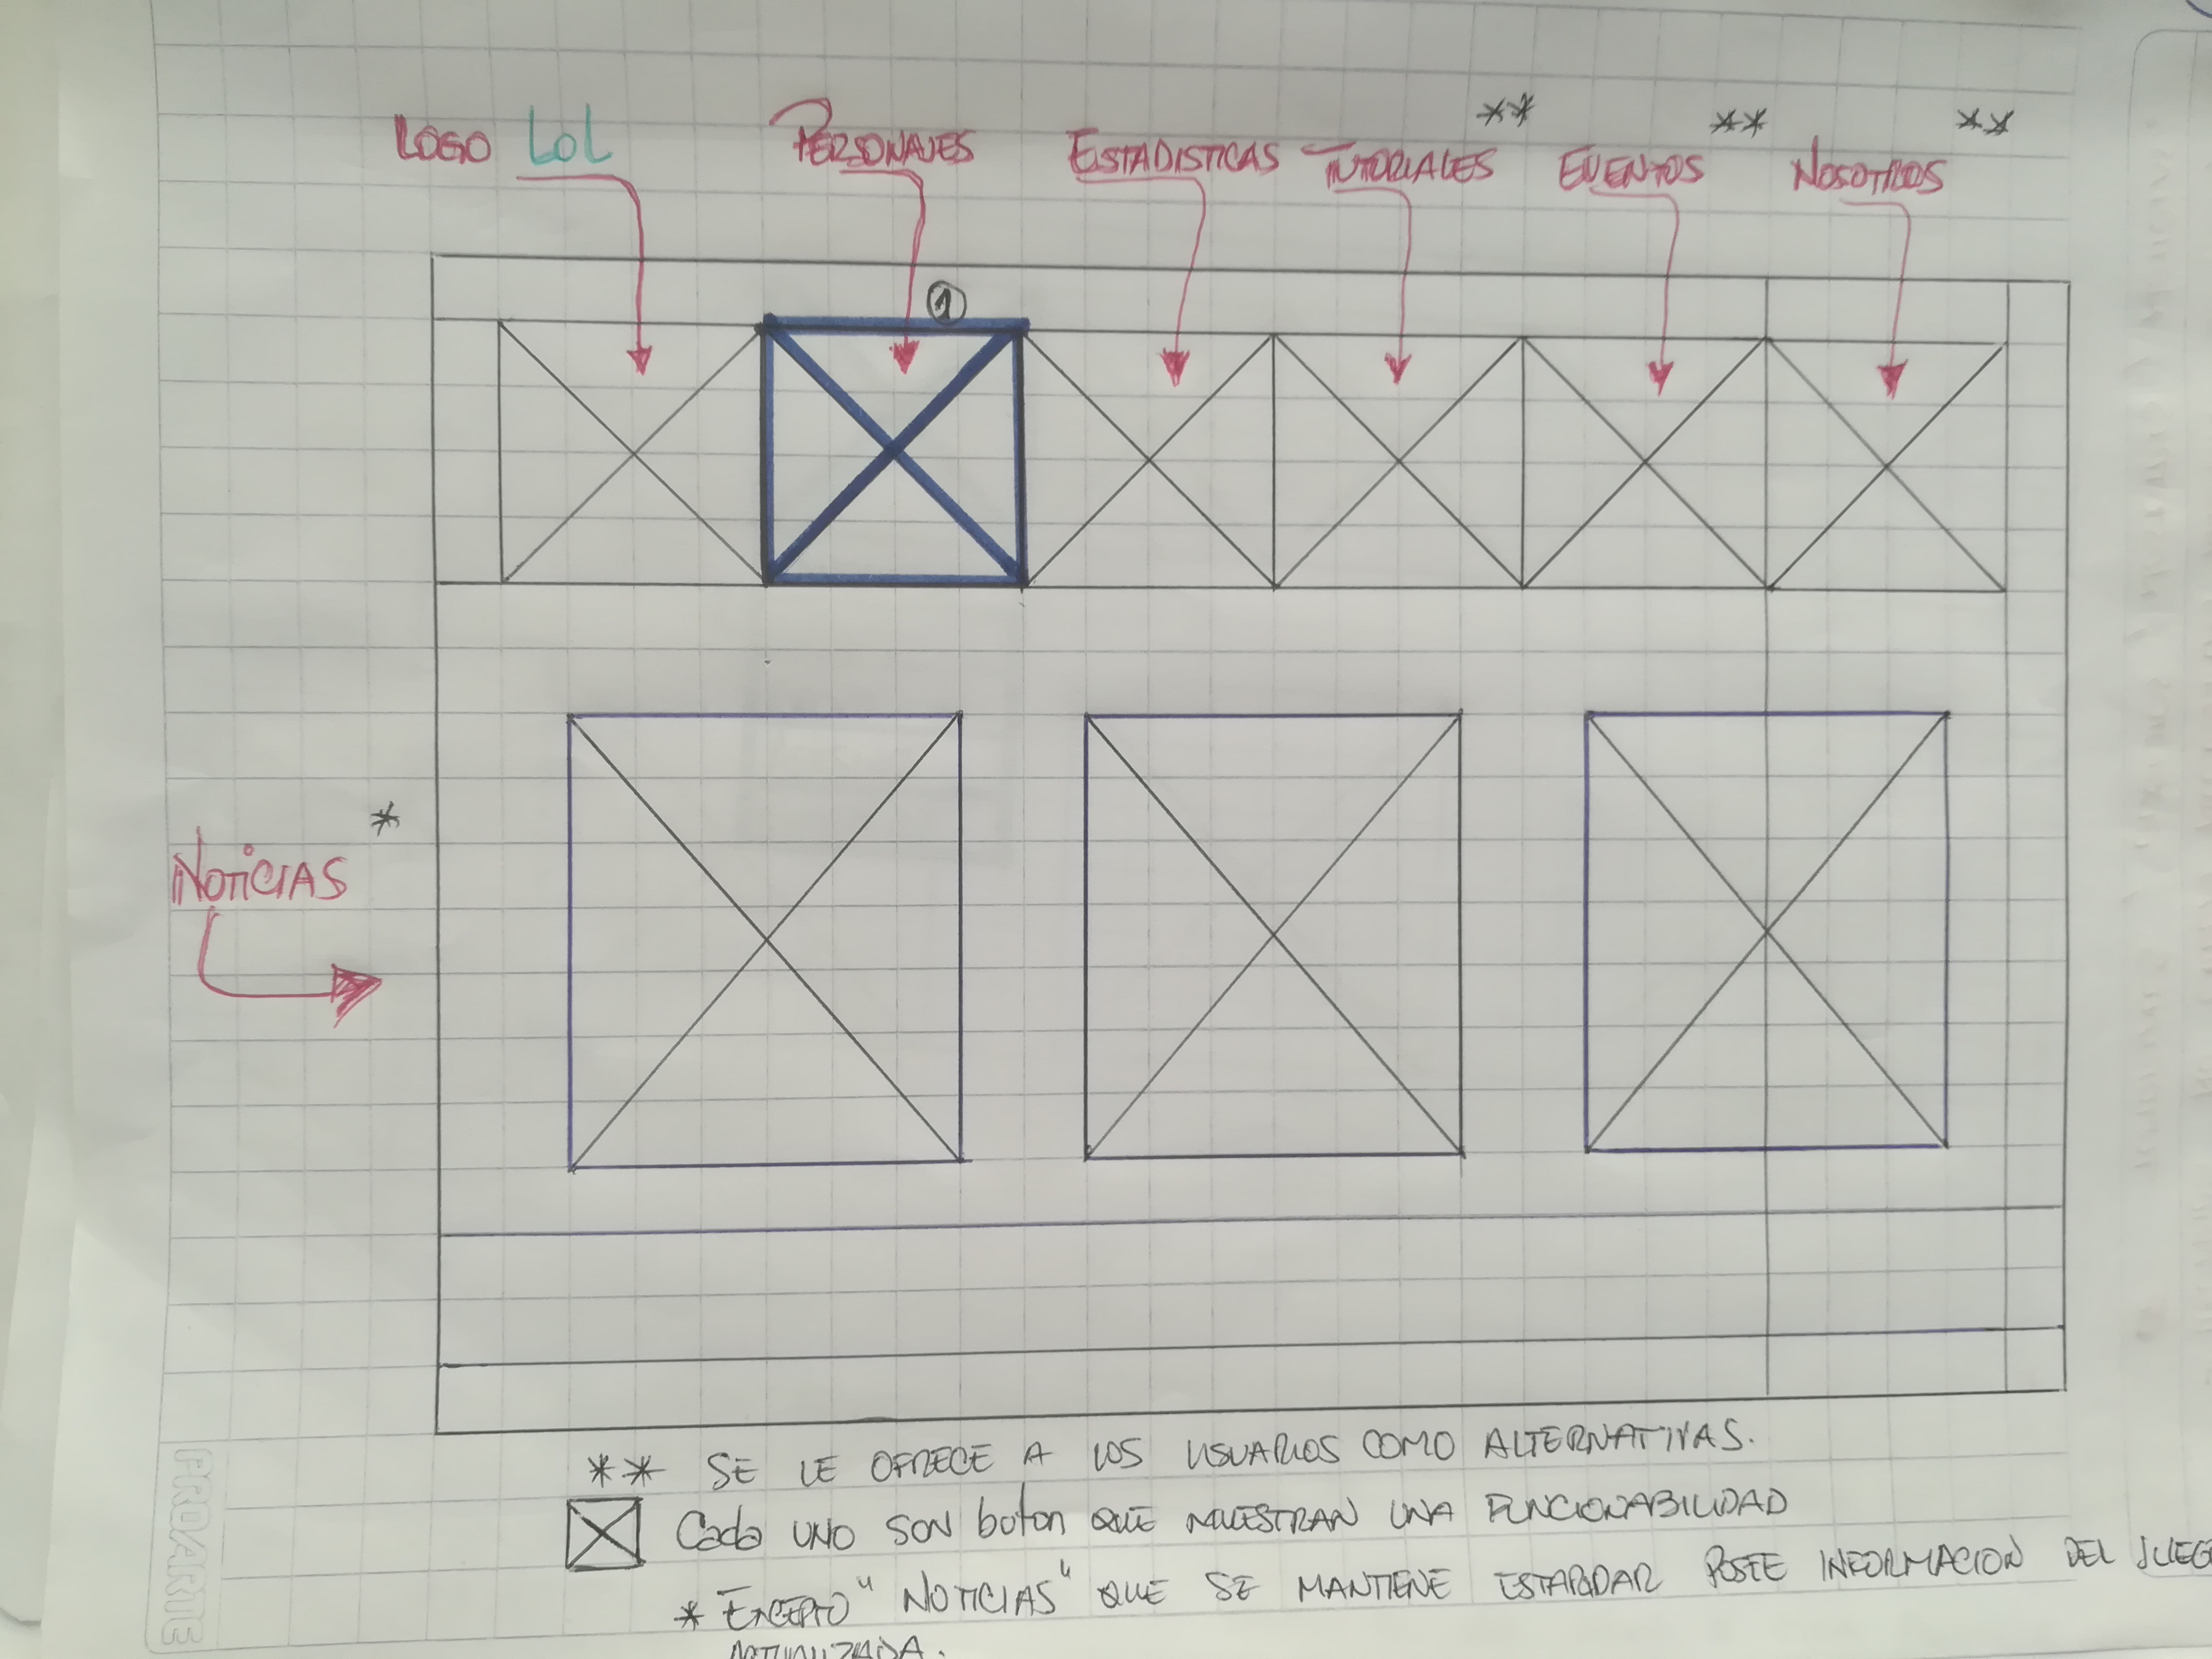 ** ** **
LOGO LOL PERSONAJES ESTADISTICAS TUTORIALES EVENTOS NOSOTROS
1
*
NOTICIAS
** SE LE OFRECE A LOS USUARIOS COMO ALTERNATIVAS.
Cada UNO SON boton QUE MUESTRAN UNA FUNCIONABILIDAD
* EXCEPTO "NOTICIAS" QUE SE MANTIENE ESTARDAR POSTE INFORMACION DEL JUEGO
ACTUALIZADA.
PROARTE